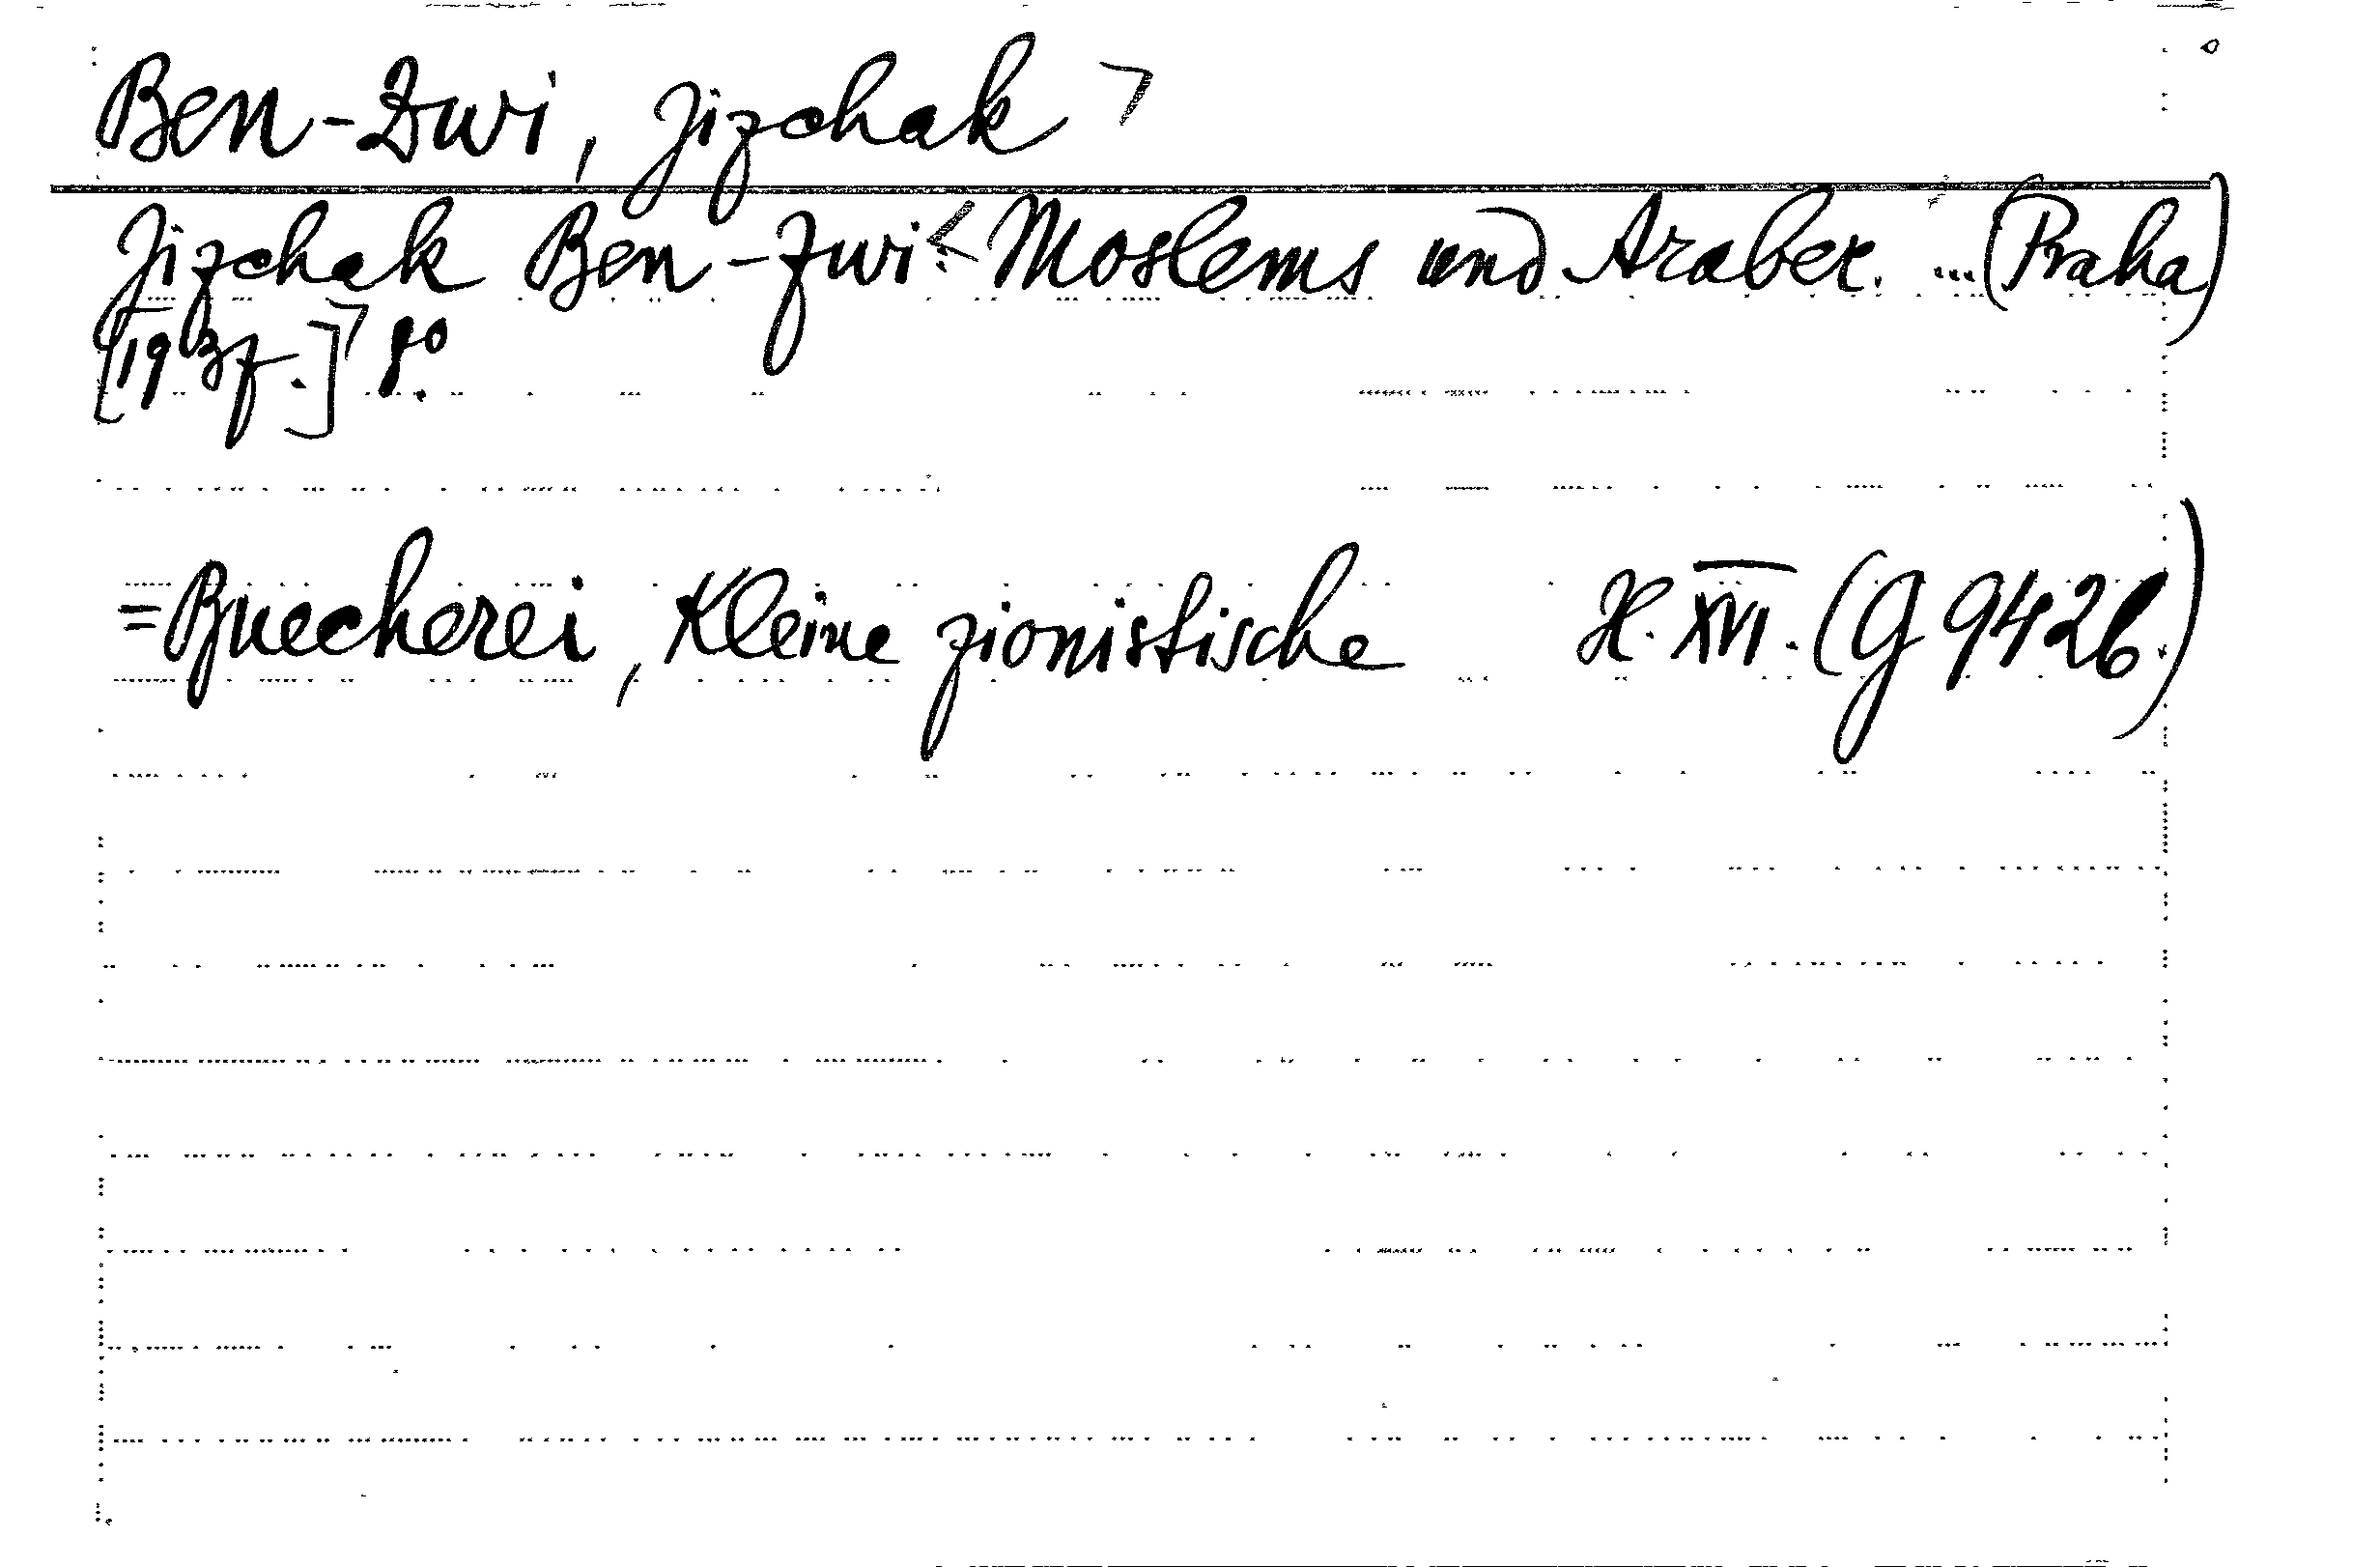 Ben-Zwi, Jizchak >
Jizchak Ben-Zwi:< Moslems und Araber. ...(Praha)
[193f.]> 8°.
=Buecherei, Kleine zionistische H. XVI. (G 9426.)